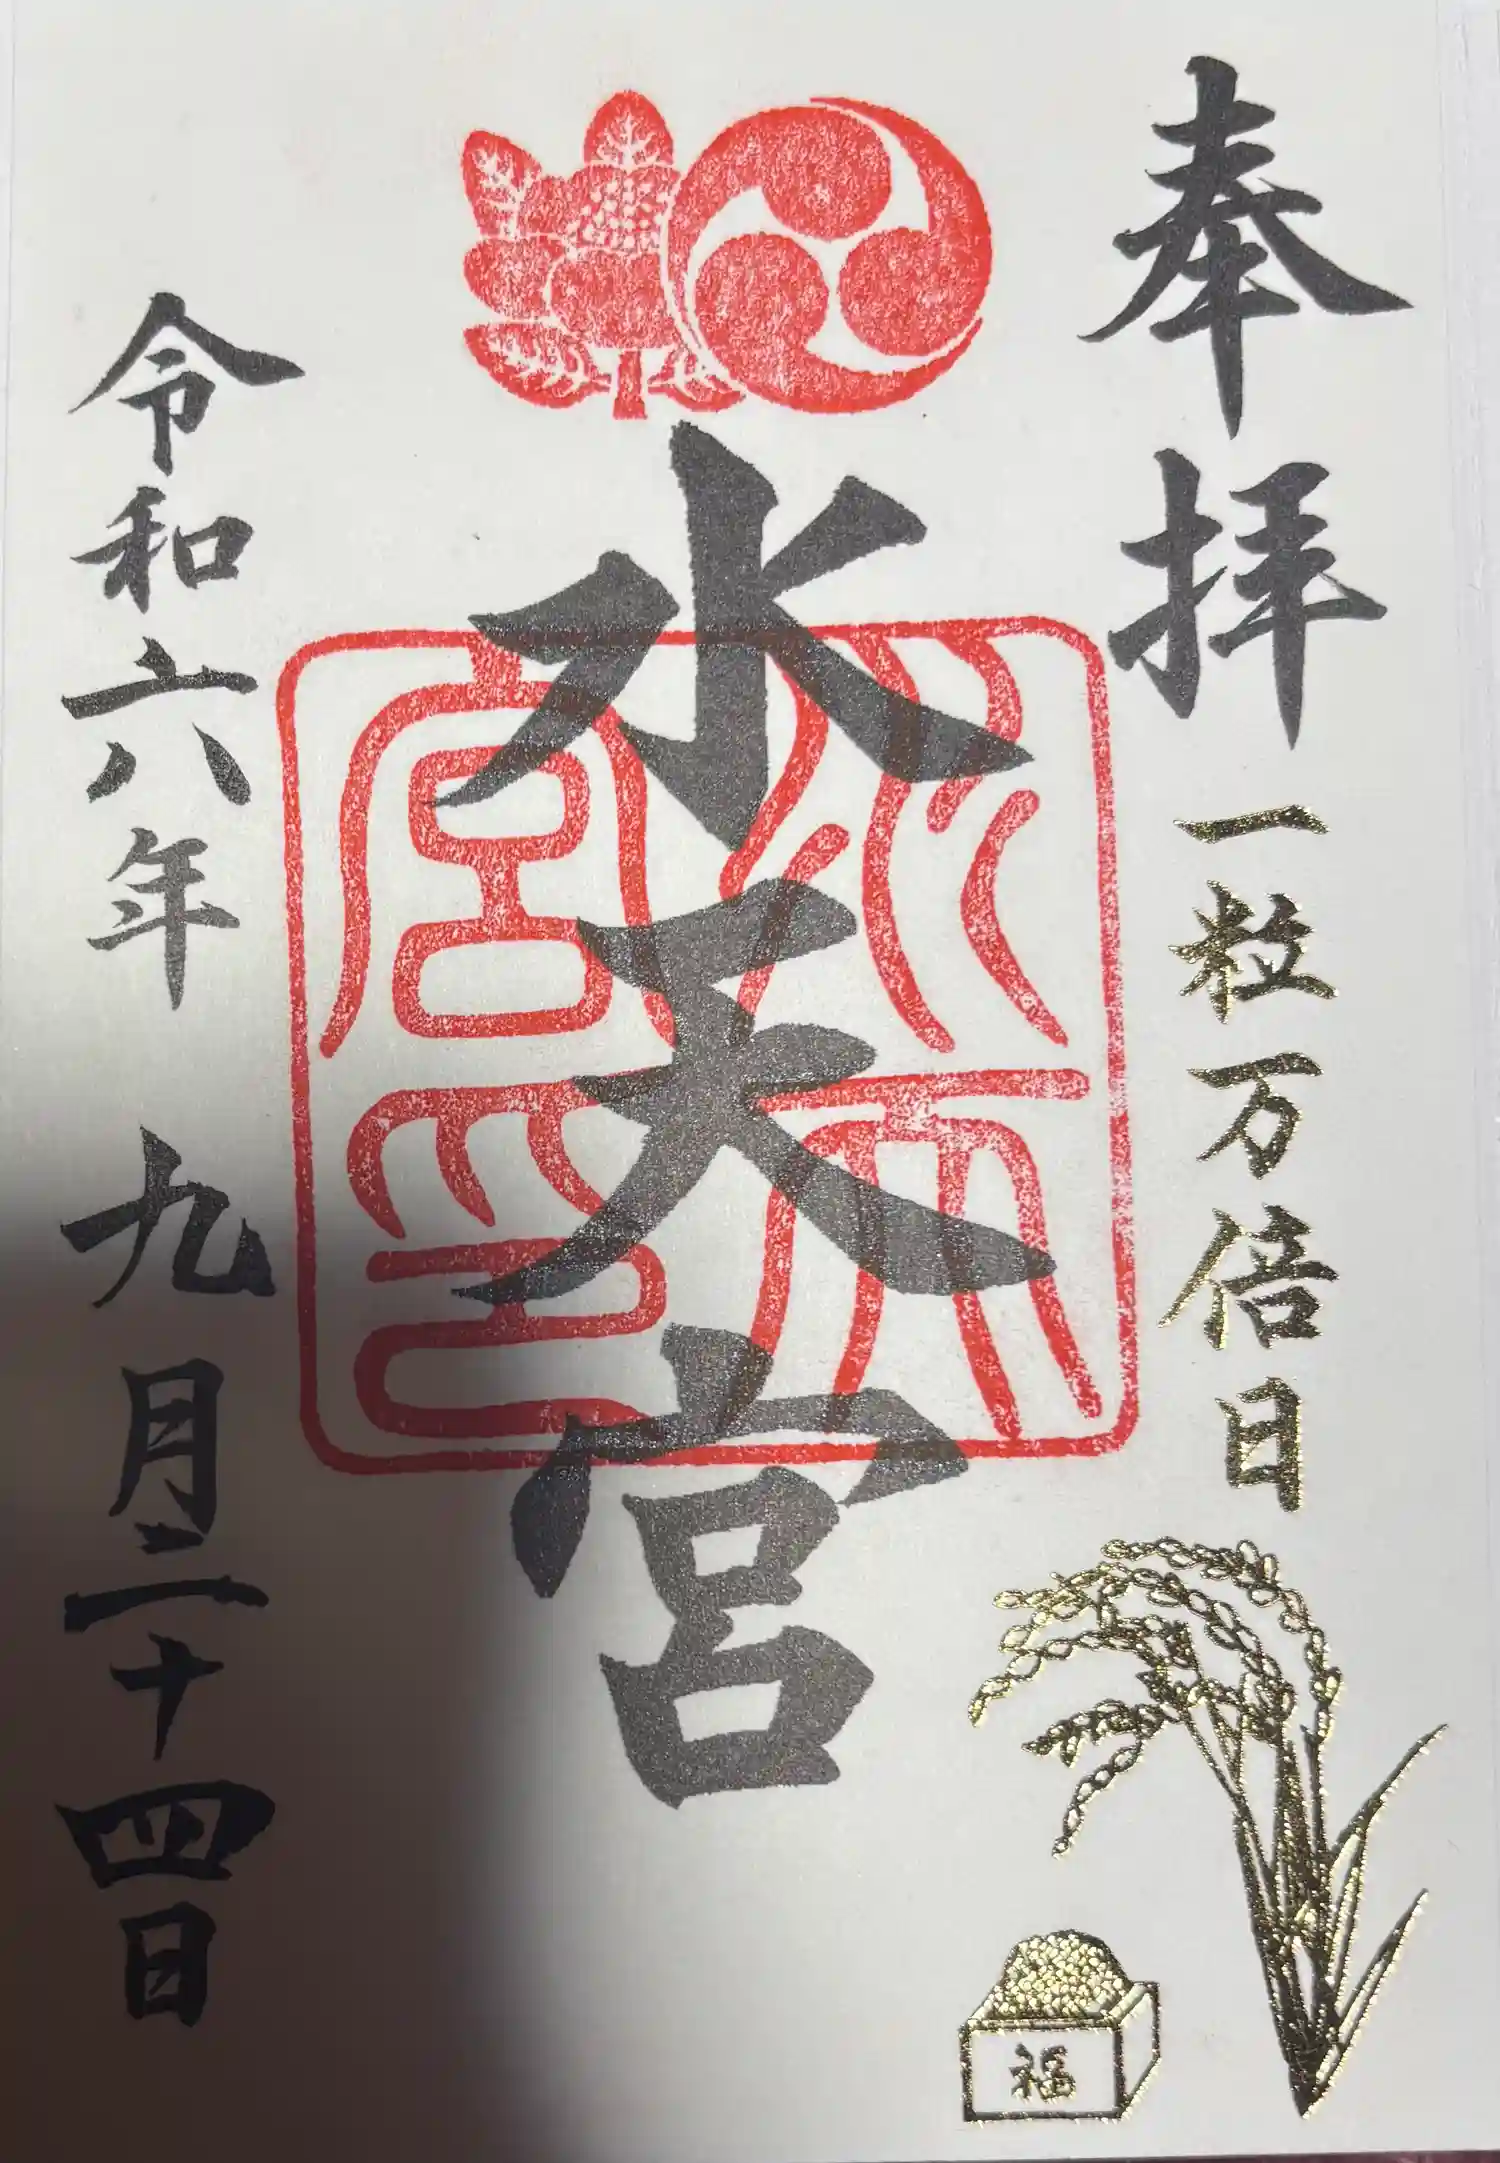 奉拝
一粒万倍日
福
水天宮
水天宮印
令和六年 九月二十四日